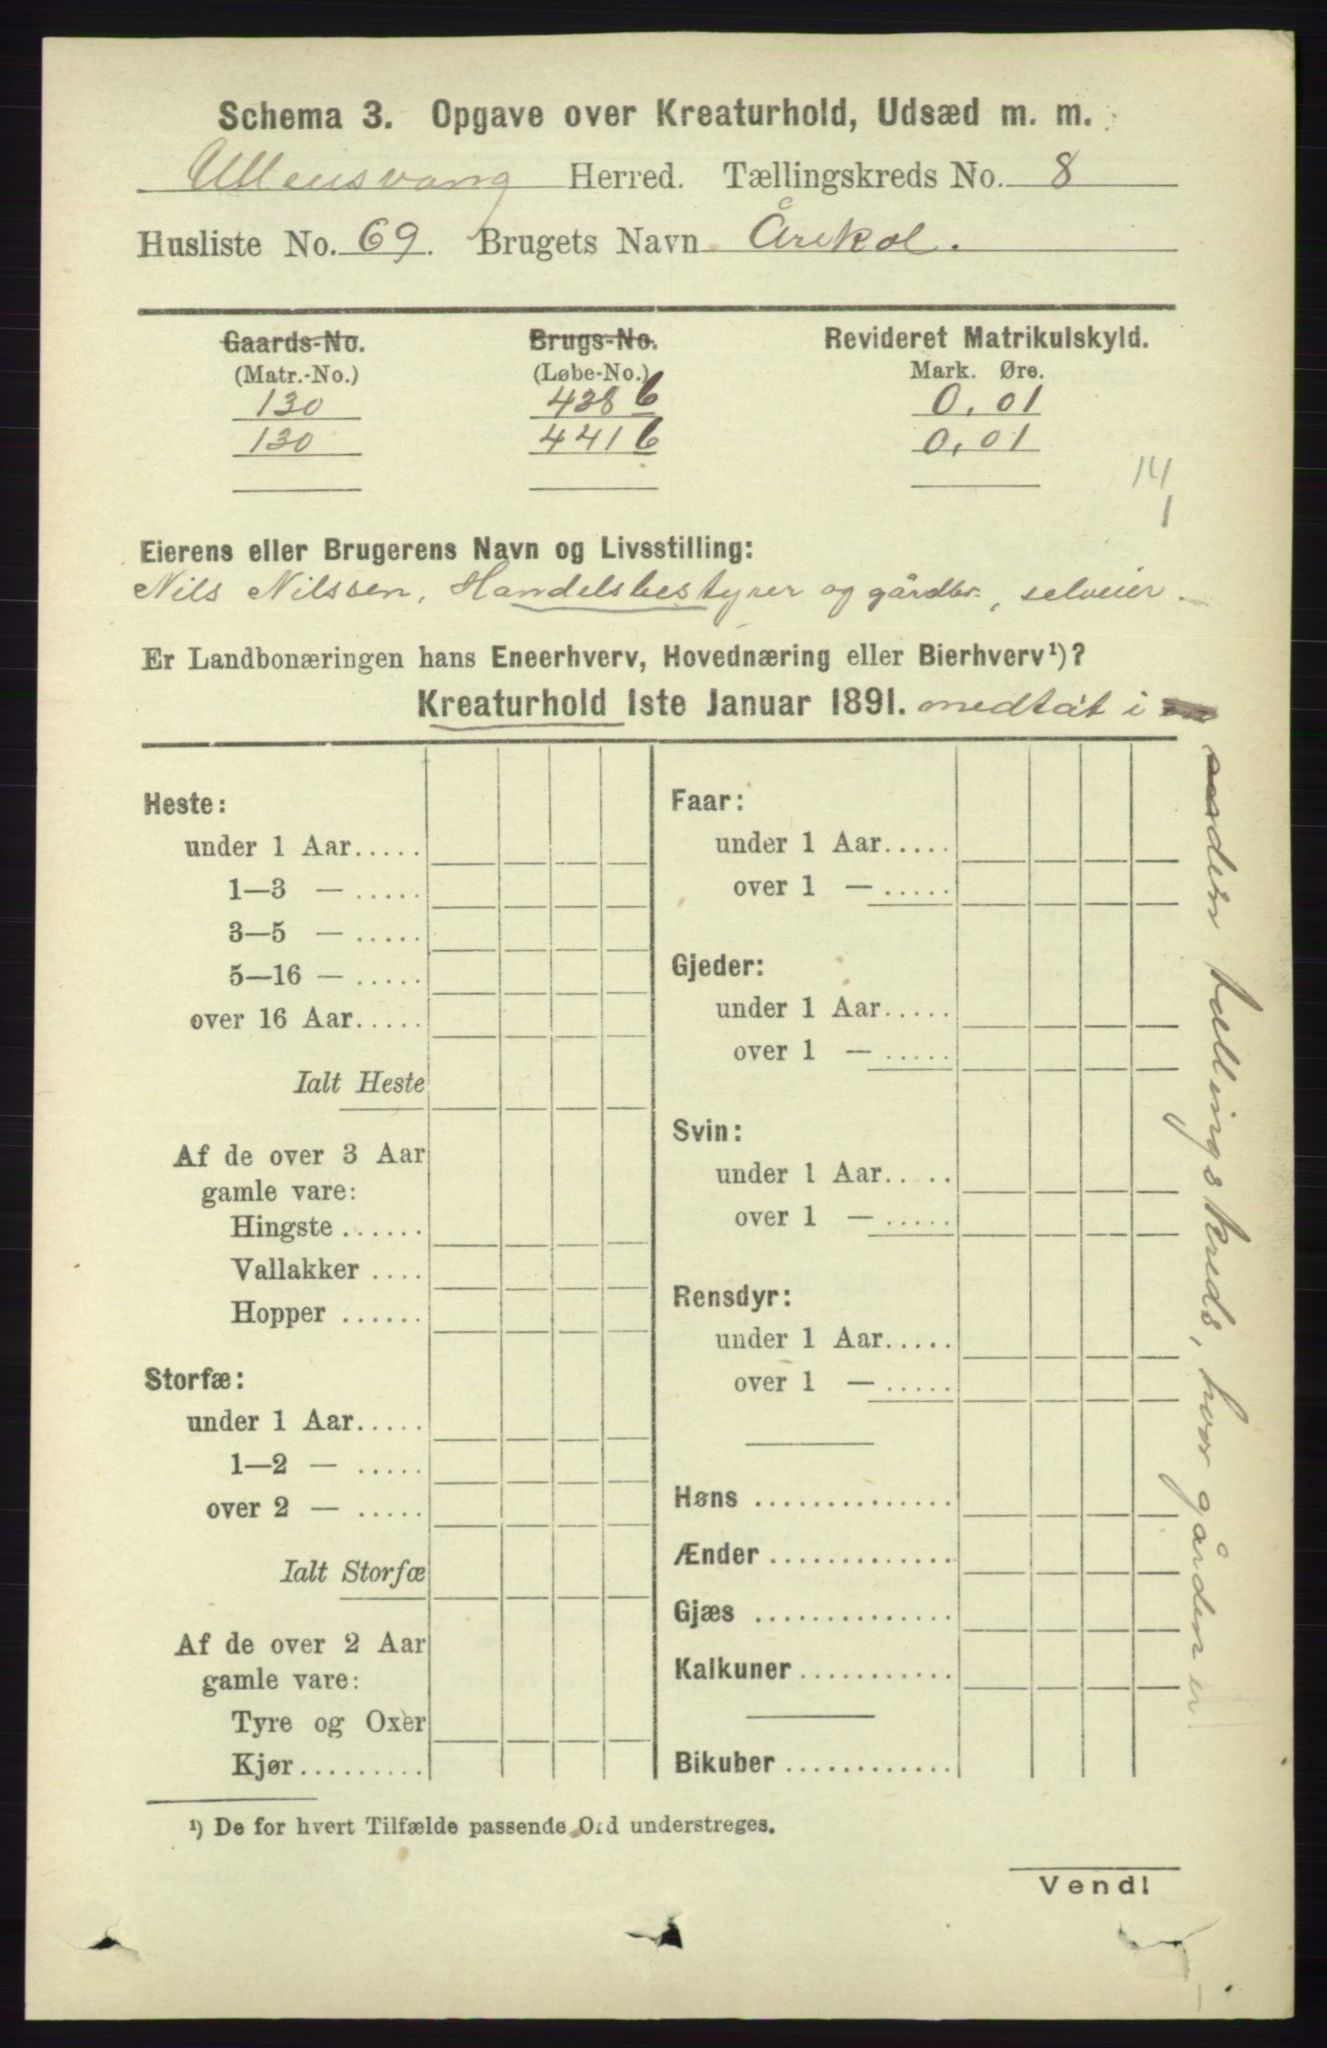 Schema 3. Opgave over Kreaturhold, Udsæd m. m.
Ullensvang Herred. Tællingskreds No. 8
Husliste No. 69. Brugets Navn Årekol.
Gaards-No. Brugs-No. Revideret Matrikulskyld.
(Matr.-No.) (Løbe-No.) Mark. Øre.
130 438 b 0,01
130 441 b 0,01
14
1
Eierens eller Brugerens Navn og Livsstilling:
Nils Nilssen, Handelsbestyrer og gårdbr., selveier.
Er Landbonæringen hans Eneerhverv, Hovednæring eller Bierhverv¹)?
Kreaturhold 1ste Januar 1891. medtat i
den tællingskreds, hvor gården er
Heste:
under 1 Aar.....
1—3 — .....
3—5 — .....
5—16 — .....
over 16 Aar.....
Ialt Heste
Af de over 3 Aar
gamle vare:
Hingste ......
Vallakker ....
Hopper ......
Storfæ:
under 1 Aar.....
1—2 — .....
over 2 — .....
Ialt Storfæ
Af de over 2 Aar
gamle vare:
Tyre og Oxer
Kjør.........
Faar:
under 1 Aar.....
over 1 — .....
Gjeder:
under 1 Aar.....
over 1 — .....
Svin:
under 1 Aar.....
over 1 — .....
Rensdyr:
under 1 Aar.....
over 1 — .....
Høns ..............
Ænder .............
Gjæs ..............
Kalkuner ...........
Bikuber ............
¹) De for hvert Tilfælde passende Ord understreges.
Vend!